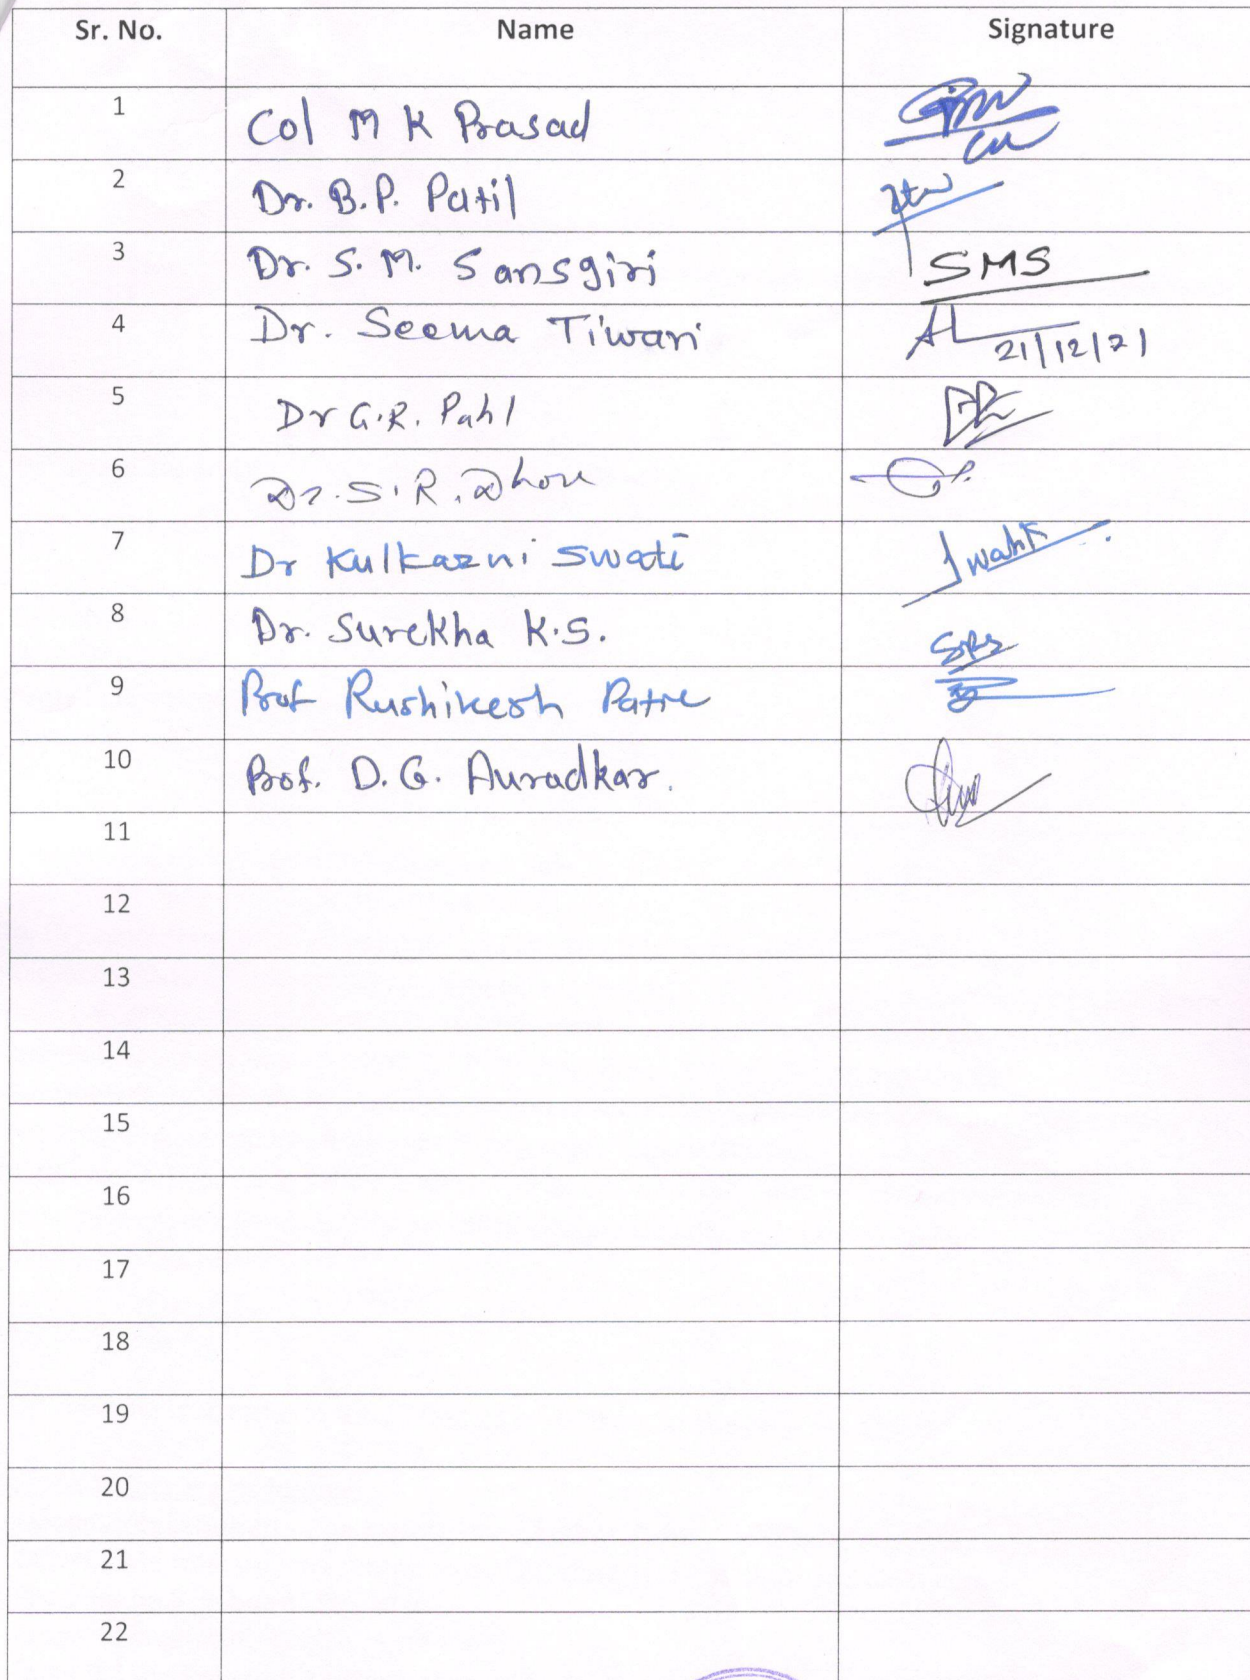 Sr. No. Name Signature
1 Col M K Prasad
2 Dr. B.P. Patil
3 Dr. S. M. Sansgiri SMS
4 Dr. Seema Tiwari 21/12/21
5 Dr G.R. Patil
6 Dr. S. R. Dhore
7 Dr Kulkarni Swati Swati
8 Dr. Surekha K.S. SKS
9 Prof Rushikesh Patre
10 Prof. D. G. Auradkar.
11
12
13
14
15
16
17
18
19
20
21
22